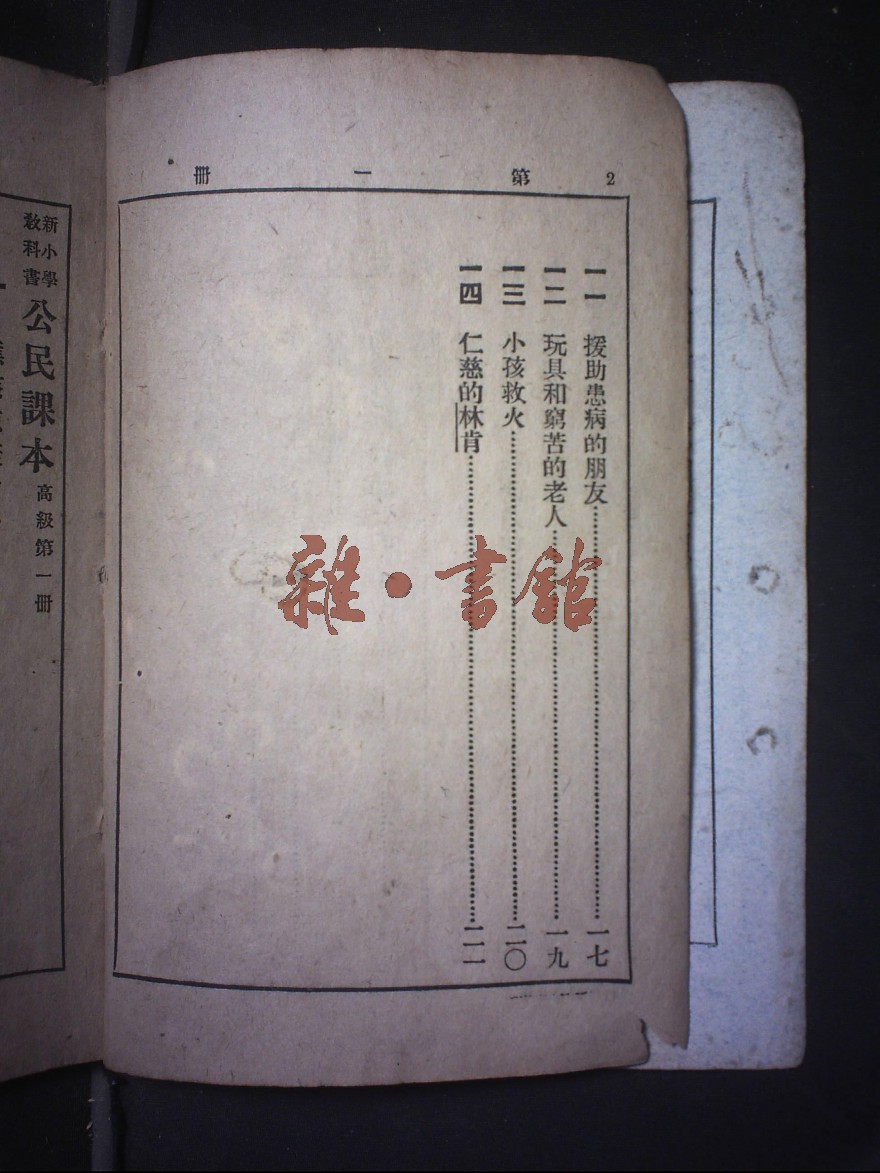 2 第一册
一一 援助患病的朋友……一七
一二 玩具和窮苦的老人……一九
一三 小孩救火……二〇
一四 仁慈的林肯……二一
雜·書館
新小學教科書 公民課本 高級第一册